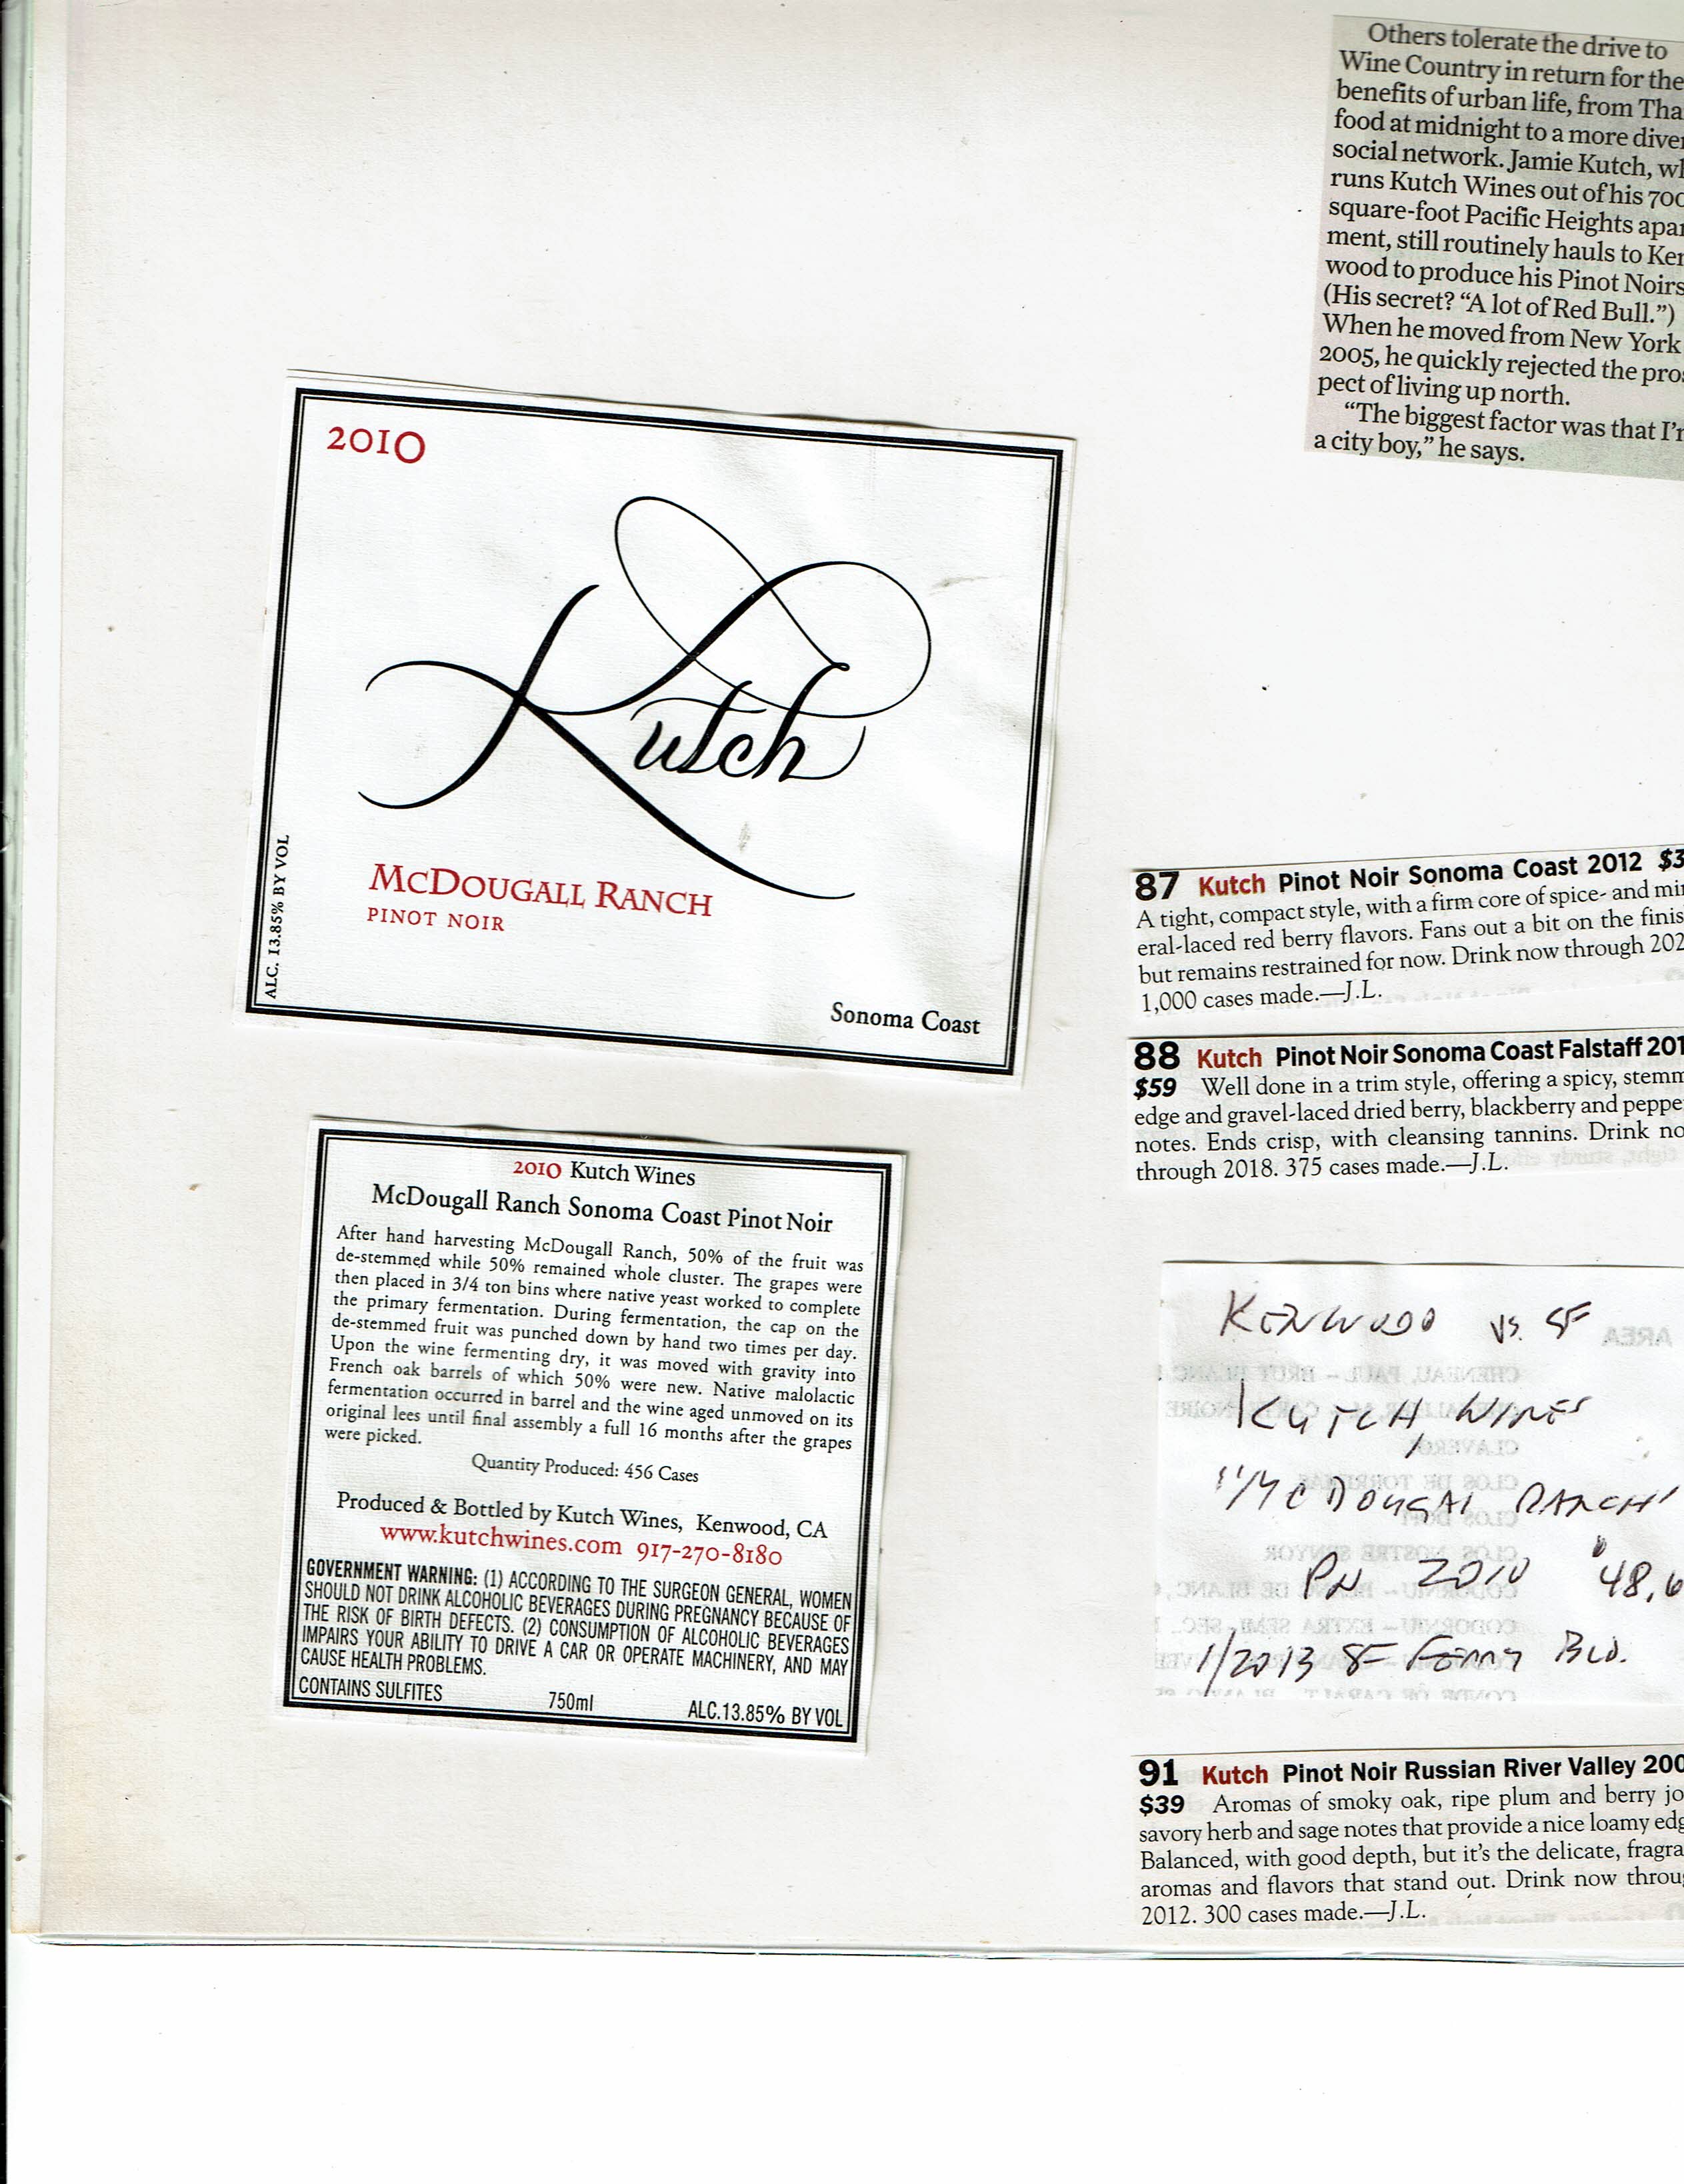 Others tolerate the drive to
Wine Country in return for the
benefits of urban life, from Tha
food at midnight to a more diver
social network. Jamie Kutch, wh
runs Kutch Wines out of his 700
square-foot Pacific Heights apar
ment, still routinely hauls to Ken
wood to produce his Pinot Noirs
(His secret? “A lot of Red Bull.”)
When he moved from New York
2005, he quickly rejected the pros
pect of living up north.
“The biggest factor was that I’m
a city boy,” he says.
2010
Kutch
McDougall Ranch
PINOT NOIR
ALC. 13.85% BY VOL
Sonoma Coast
2010 Kutch Wines
McDougall Ranch Sonoma Coast Pinot Noir
After hand harvesting McDougall Ranch, 50% of the fruit was
de-stemmed while 50% remained whole cluster. The grapes were
then placed in 3/4 ton bins where native yeast worked to complete
the primary fermentation. During fermentation, the cap on the
de-stemmed fruit was punched down by hand two times per day.
Upon the wine fermenting dry, it was moved with gravity into
French oak barrels of which 50% were new. Native malolactic
fermentation occurred in barrel and the wine aged unmoved on its
original lees until final assembly a full 16 months after the grapes
were picked.
Quantity Produced: 456 Cases
Produced & Bottled by Kutch Wines, Kenwood, CA
www.kutchwines.com 917-270-8180
GOVERNMENT WARNING: (1) ACCORDING TO THE SURGEON GENERAL, WOMEN
SHOULD NOT DRINK ALCOHOLIC BEVERAGES DURING PREGNANCY BECAUSE OF
THE RISK OF BIRTH DEFECTS. (2) CONSUMPTION OF ALCOHOLIC BEVERAGES
IMPAIRS YOUR ABILITY TO DRIVE A CAR OR OPERATE MACHINERY, AND MAY
CAUSE HEALTH PROBLEMS.
CONTAINS SULFITES 750ml ALC.13.85% BY VOL
87 Kutch Pinot Noir Sonoma Coast 2012 $3
A tight, compact style, with a firm core of spice- and min
eral-laced red berry flavors. Fans out a bit on the finis
but remains restrained for now. Drink now through 202
1,000 cases made.—J.L.
88 Kutch Pinot Noir Sonoma Coast Falstaff 201
$59 Well done in a trim style, offering a spicy, stemm
edge and gravel-laced dried berry, blackberry and peppe
notes. Ends crisp, with cleansing tannins. Drink no
through 2018. 375 cases made.—J.L.
KENWOOD VS. SF
KUTCH WINES
"McDOUGAL RANCH"
PN 2010 $48.0
1/2013 SF FERRY BLD.
91 Kutch Pinot Noir Russian River Valley 200
$39 Aromas of smoky oak, ripe plum and berry jo
savory herb and sage notes that provide a nice loamy edg
Balanced, with good depth, but it’s the delicate, fragra
aromas and flavors that stand out. Drink now throu
2012. 300 cases made.—J.L.